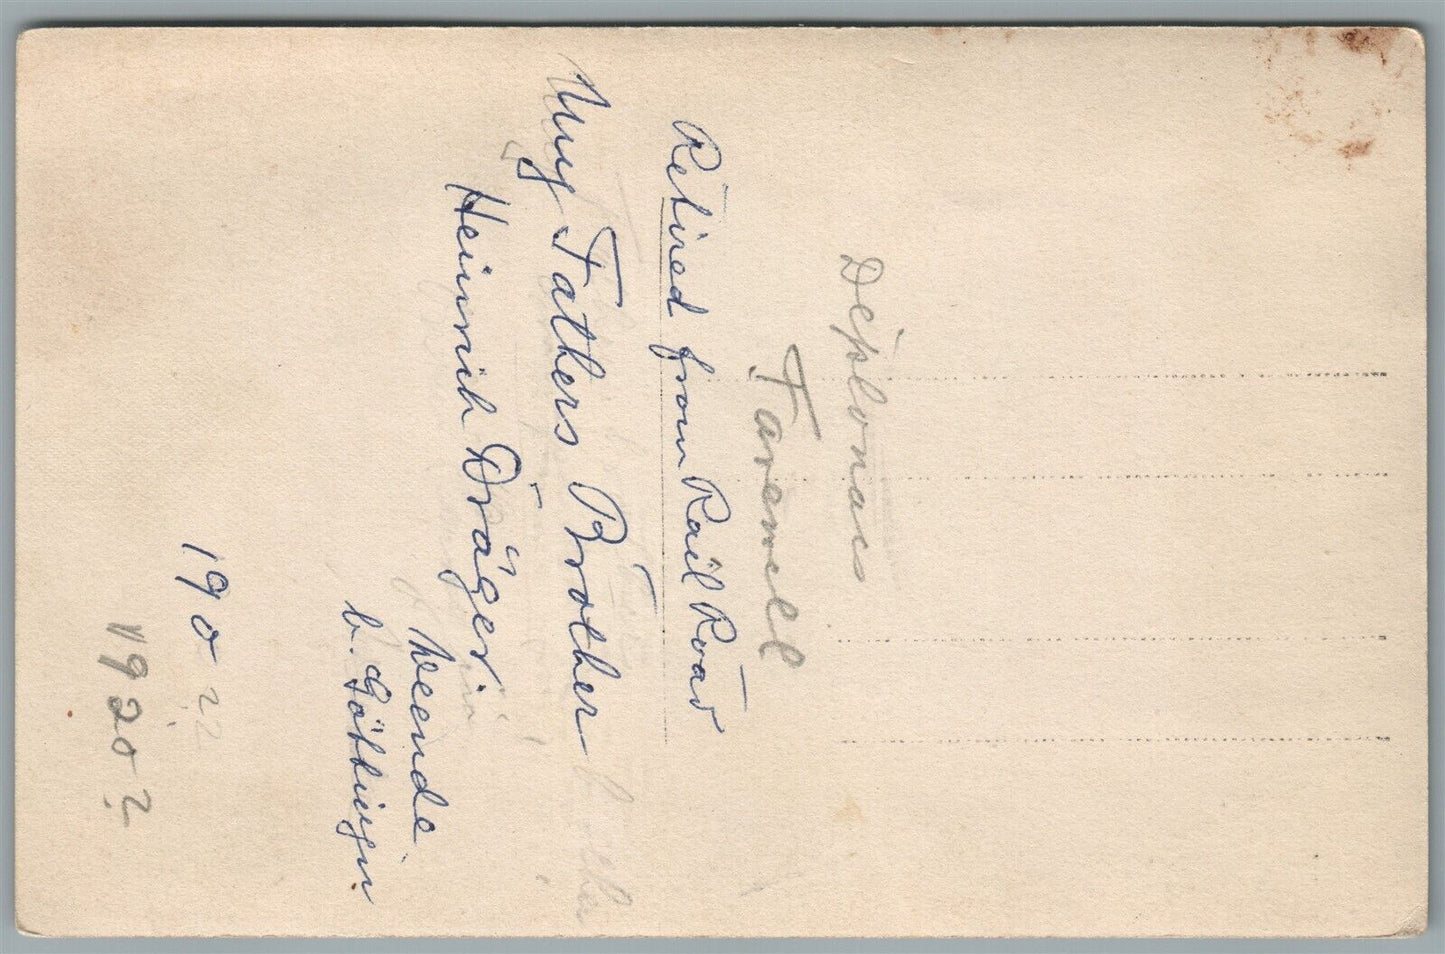 Déplonais
Farawell
Retired from Rail Road
My Fathers Brother
Heinrich Dräger
Weende
b. Göttingin
190
1920?